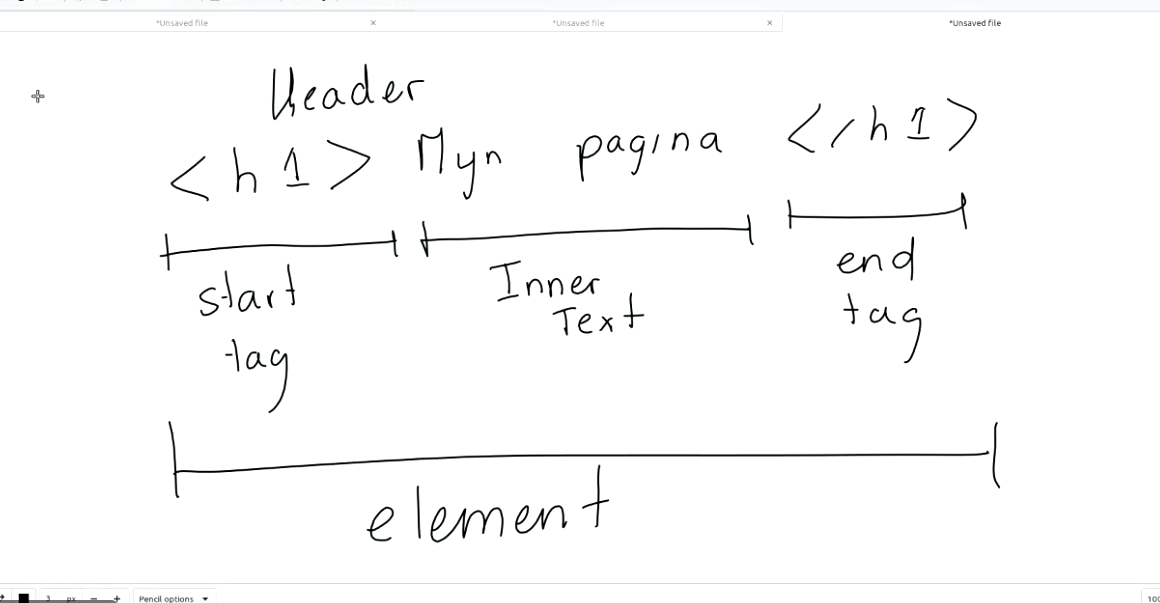 *Unsaved file × *Unsaved file × *Unsaved file
Header
<h1> Myn pagina </h1>
start tag
Inner Text
end tag
element
3 px − + Pencil options
100